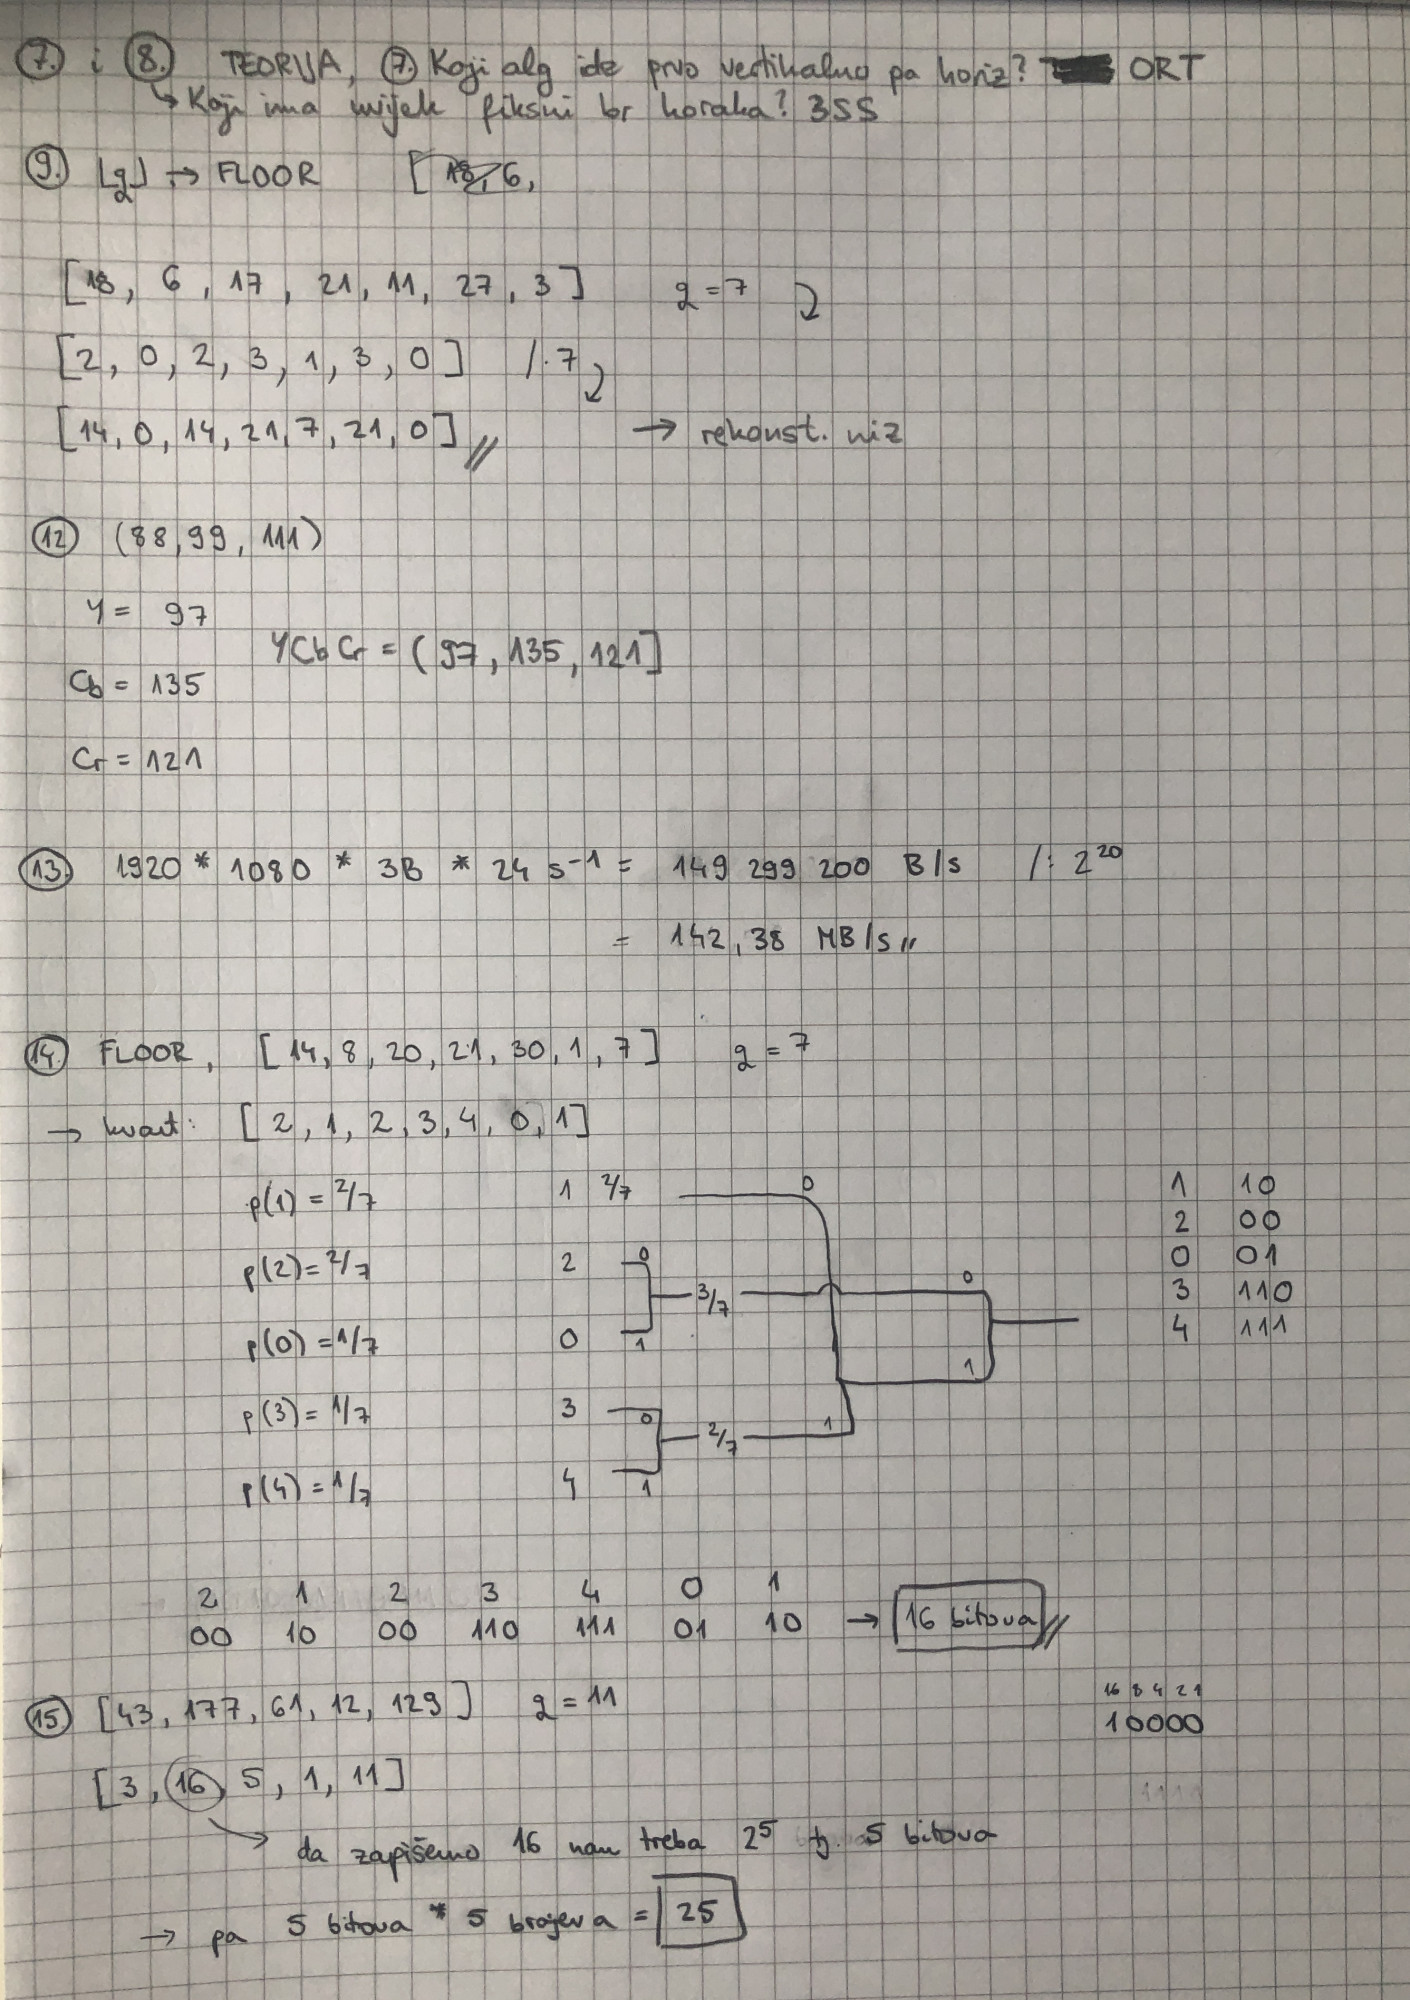 7. i 8. TEORIJA, 7. Koji alg ide prvo vertikalno pa horiz? ORT
↳ Koji ima uvijek fiksni br koraka? 3SS
9. ⌊q⌋ → FLOOR [ 6,
[18, 6, 17, 21, 11, 27, 3] q = 7
[2, 0, 2, 3, 1, 3, 0] /·7
[14, 0, 14, 21, 7, 21, 0] → rekonst. niz
12 (88, 99, 111)
Y = 97
YCbCr = (97, 135, 121]
Cb = 135
Cr = 121
13. 1920 * 1080 * 3B * 24 s⁻¹ = 149 299 200 B/s /: 2²⁰
= 142,38 MB/s
14. FLOOR, [14, 8, 20, 21, 30, 1, 7] q = 7
→ kvant: [2, 1, 2, 3, 4, 0, 1]
p(1) = 2/7 1 2/7 0 1 10
2 00
p(2) = 2/7 2 0 0 01
3/7 0 3 110
p(0) = 1/7 0 1 1 4 111
p(3) = 1/7 3 0
2/7 1
p(4) = 1/7 4 1
2 1 2 3 4 0 1
00 10 00 110 111 01 10 → 16 bitova
15 [43, 177, 61, 12, 129] q = 11
16 8 4 2 1
10000
[3, 16, 5, 1, 11]
da zapišemo 16 nam treba 2⁵ tj. 5 bitova
→ pa 5 bitova * 5 brojeva = 25